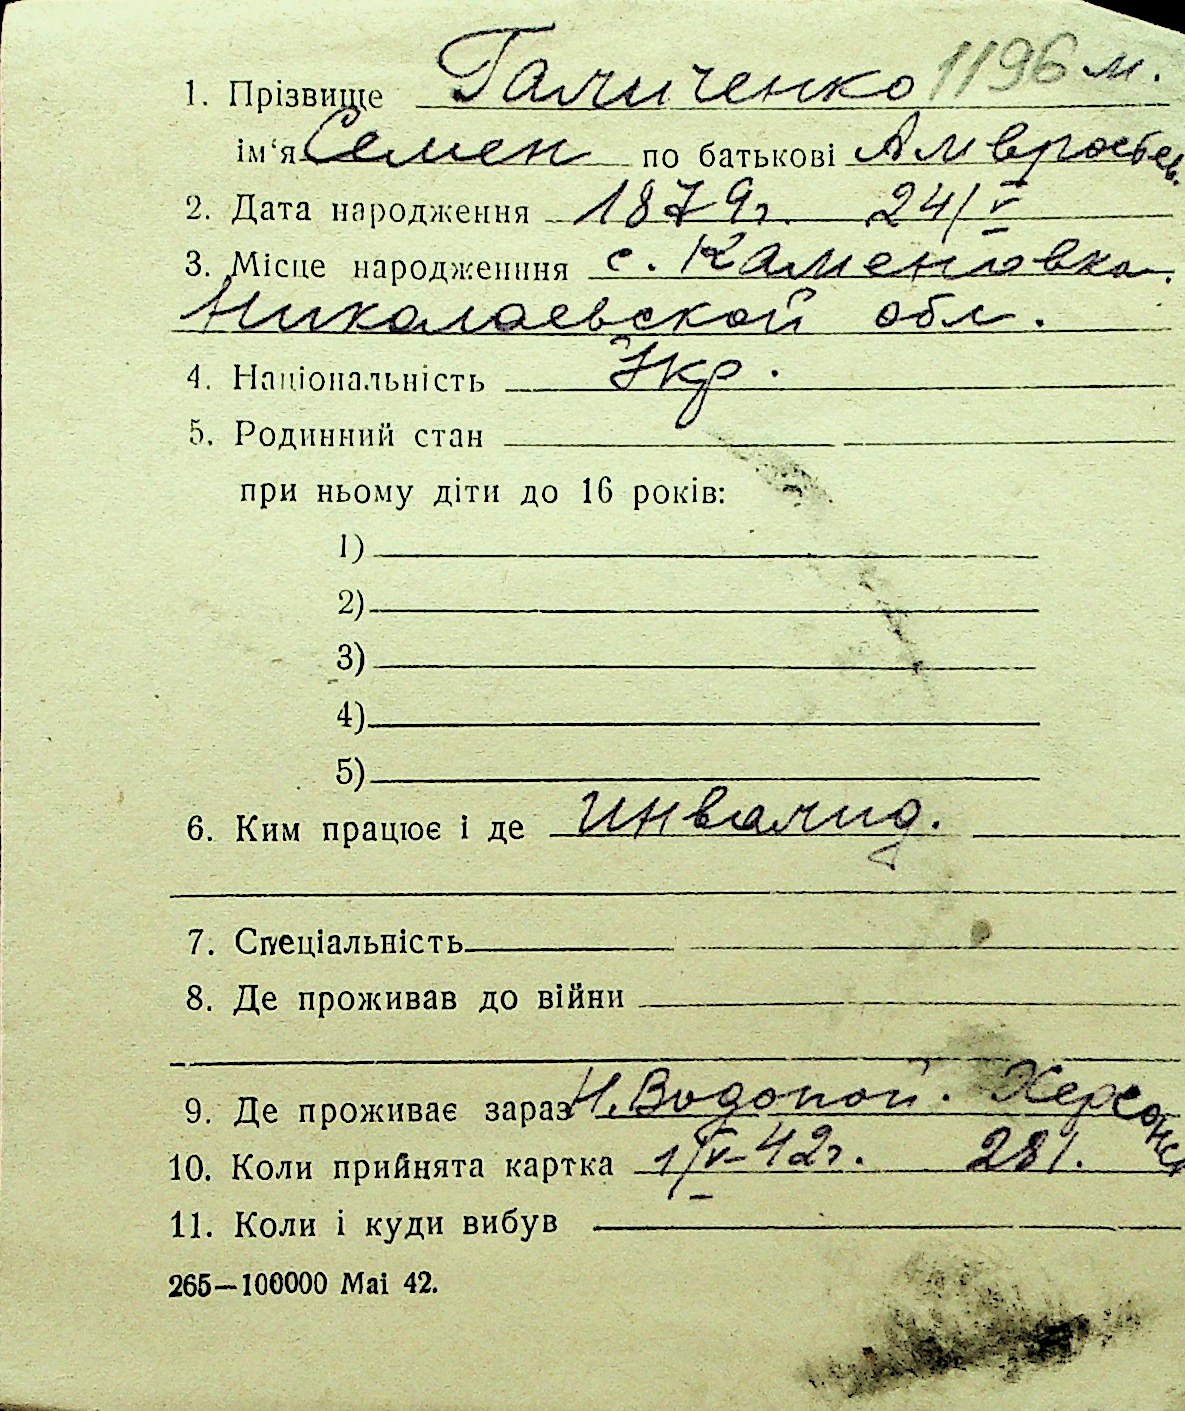 1. Прізвище Галиченко 1196 м.
ім'я Семен по батькові Амвросиев.
2. Дата народження 1879г. 24/V
3. Місце народженння с. Каменовка.
Николаевской обл.
4. Національність Укр.
5. Родинний стан
при ньому діти до 16 років:
1)
2)
3)
4)
5)
6. Ким працює і де инвалид.
7. Спеціальність
8. Де проживав до війни
9. Де проживає зараз Н.Водопой. Херсонск
10. Коли прийнята картка 1/V-42г. 281.
11. Коли і куди вибув
265—100000 Маі 42.